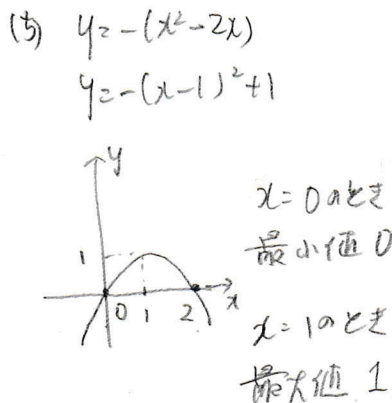 (5) y=-(x²-2x)
y=-(x-1)²+1
y
1
0 1 2 x
x=0のとき
最小値 0
x=1のとき
最大値 1